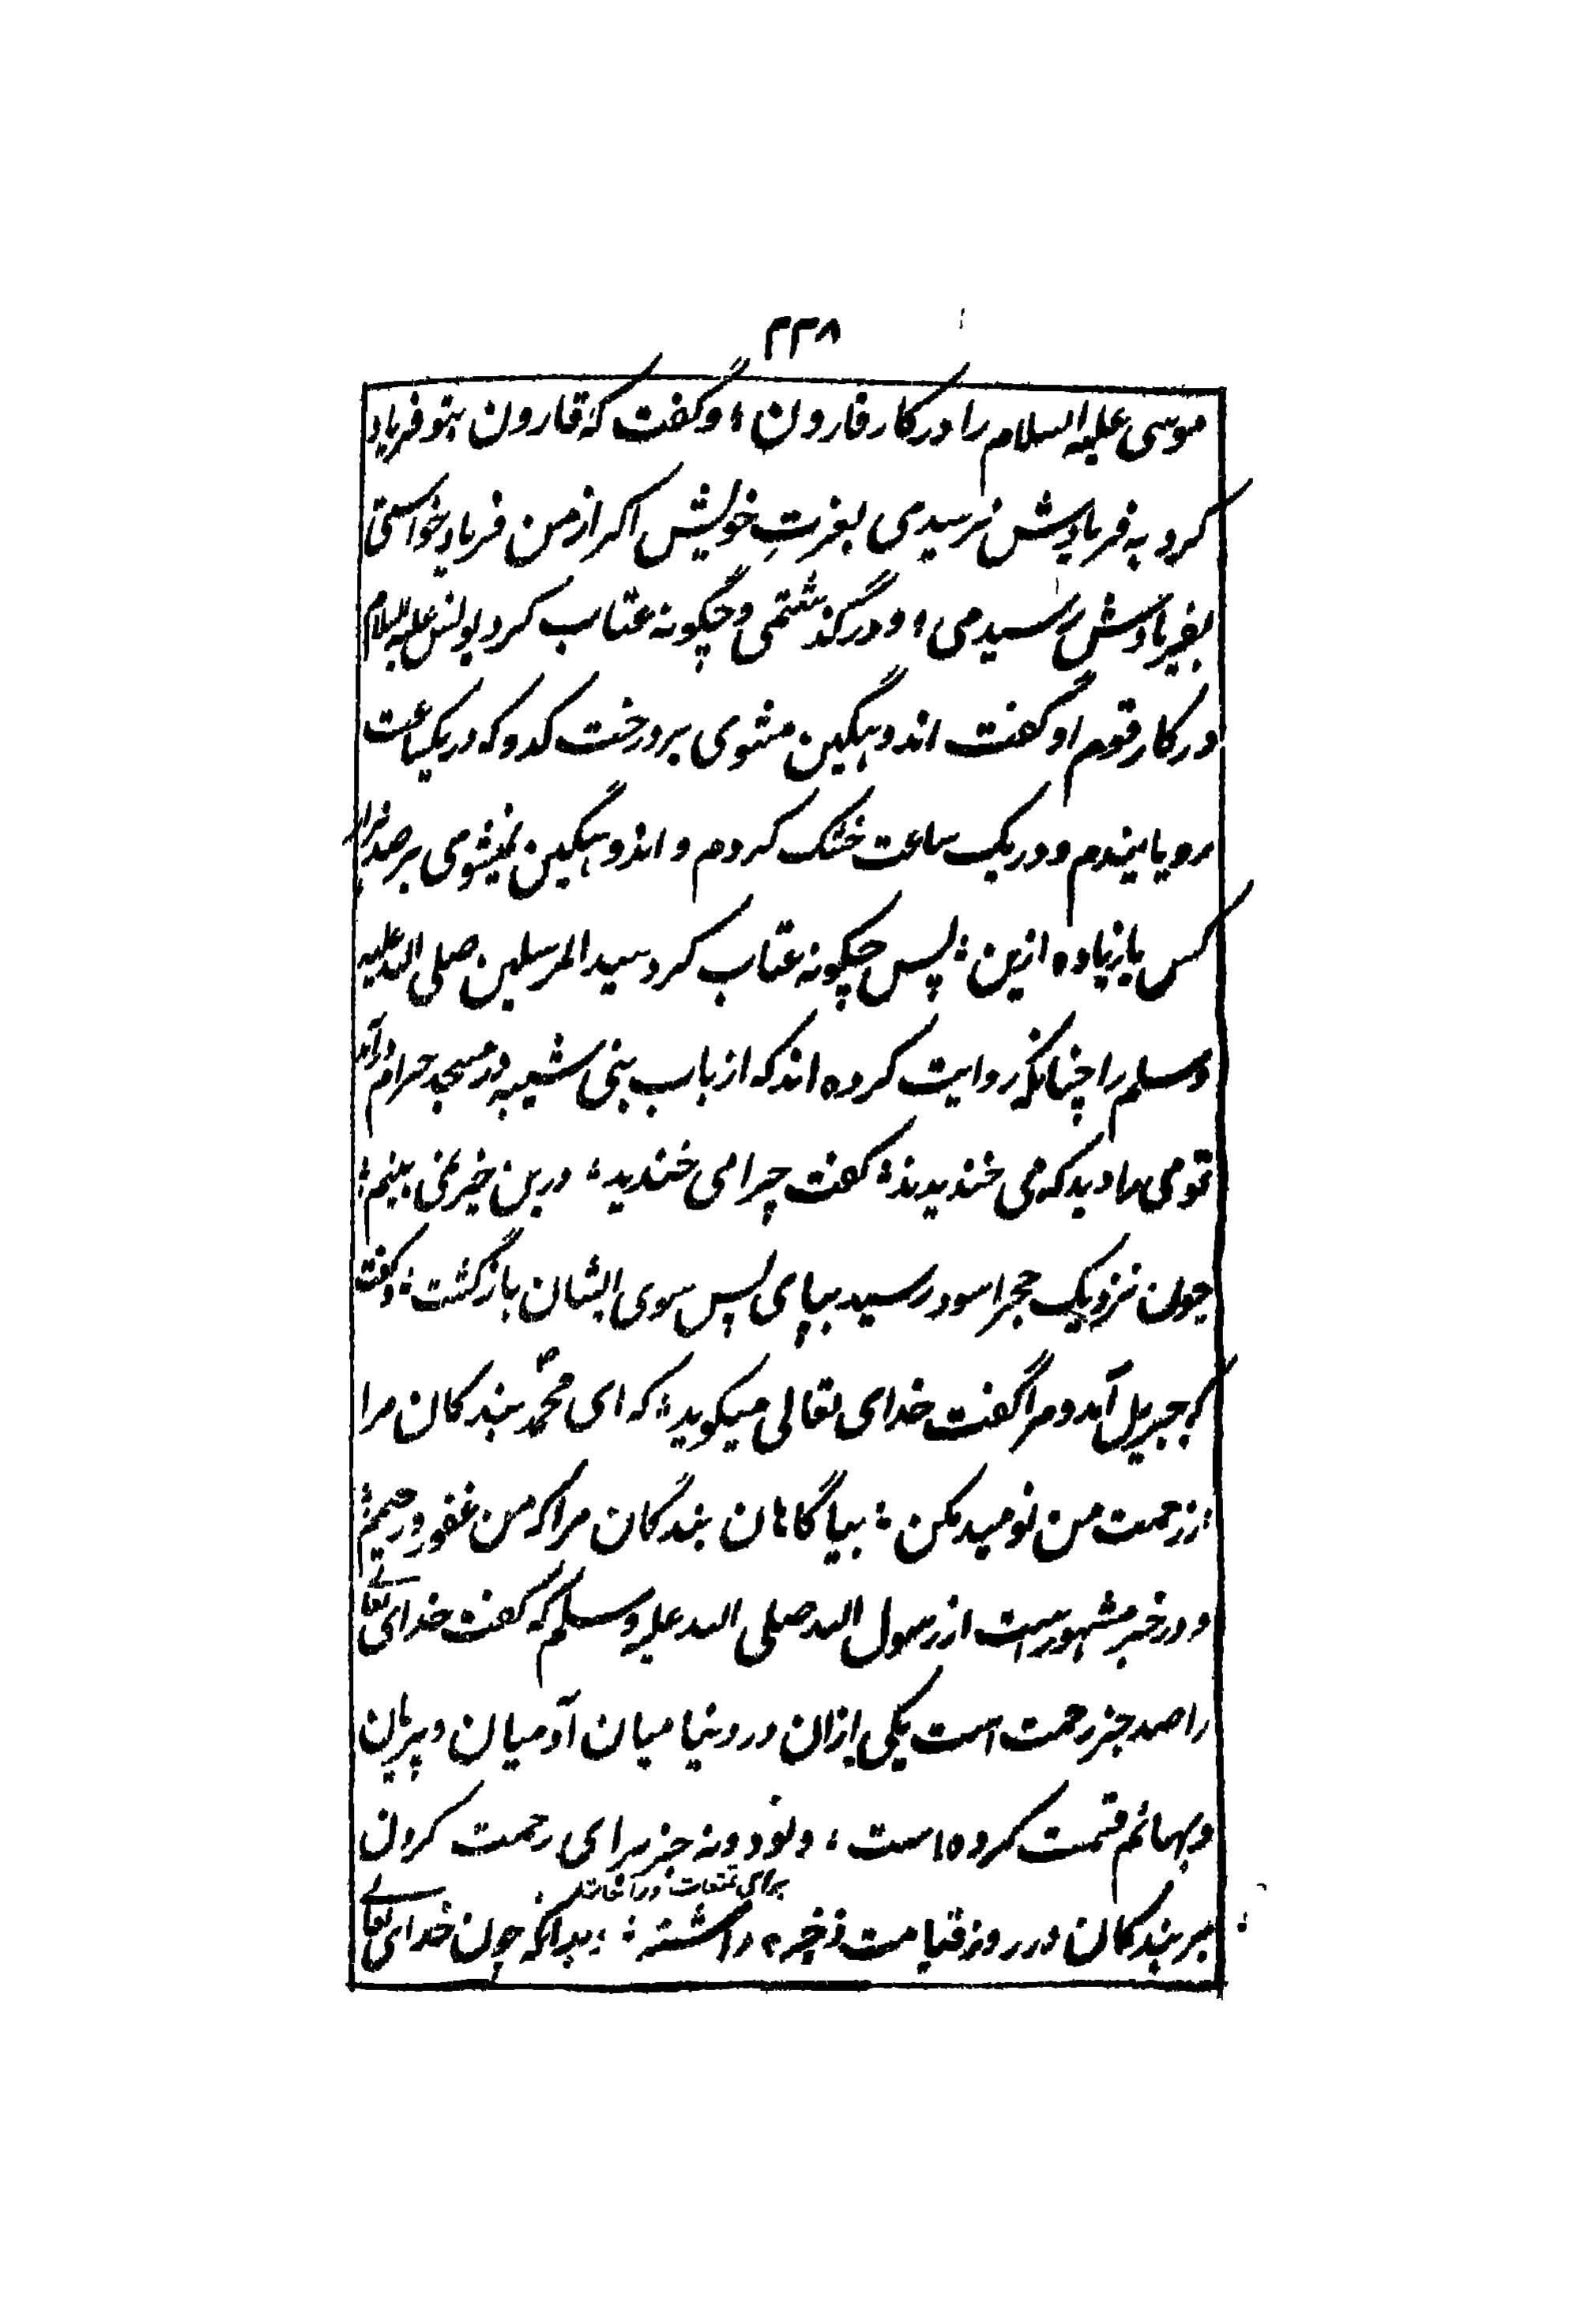 ۲۳۸
موسی علیه السلام را در کار قارون ؛ و گفت که قارون بتو فریاد
کرد به فریادش نرسیدی بعزتِ خویش اگر از من فریاد خواستی
بفریادش رسیدمی ؛ و درگذشتمی و چگونه عتاب کرد یونس علیه السلام
در کار قوم او گفت اندوهگین مشوی بر درخت کدو که در یکساعت
رویانیدم و در یک ساعت خشک کردم و اندوهگین نمیشوی بر صد هزار
کس یا زیاده ازین ؛ پس چگونه عتاب کرد سید المرسلین صلی الله علیه
وسلم را چنانکه روایت کرده اند که از باب بنی شیبه در مسجد حرام درآمد
قومی را دید که می خندیدند ؛ گفت چرا می خندید ؛ درین خیر نمی بینم ؛
چون نزدیک حجر اسود رسید بپای پس سوی ایشان بازگشت ؛ وگفت
که جبریل آمد و مرا گفت خدای تعالی میگوید ؛ که ای محمدؐ بندگان مرا
از رحمت من نومید مکن ؛ بیاگاهان بندگان مرا که من غفور و رحیمم ؛
و در خبر مشهورست از رسول الله صلی الله علیه وسلم که گفت خدای تعالے
را صد جزو رحمت است یکی ازان در دنیا میان آدمیان و پریان
و بهائم قسمت کرده است ؛ و نود و نه جز برای رحمت کردن
برای
بر بندگان در روز قیامت ذخیره داشته ؛ بدانکه چون خدای تعالے